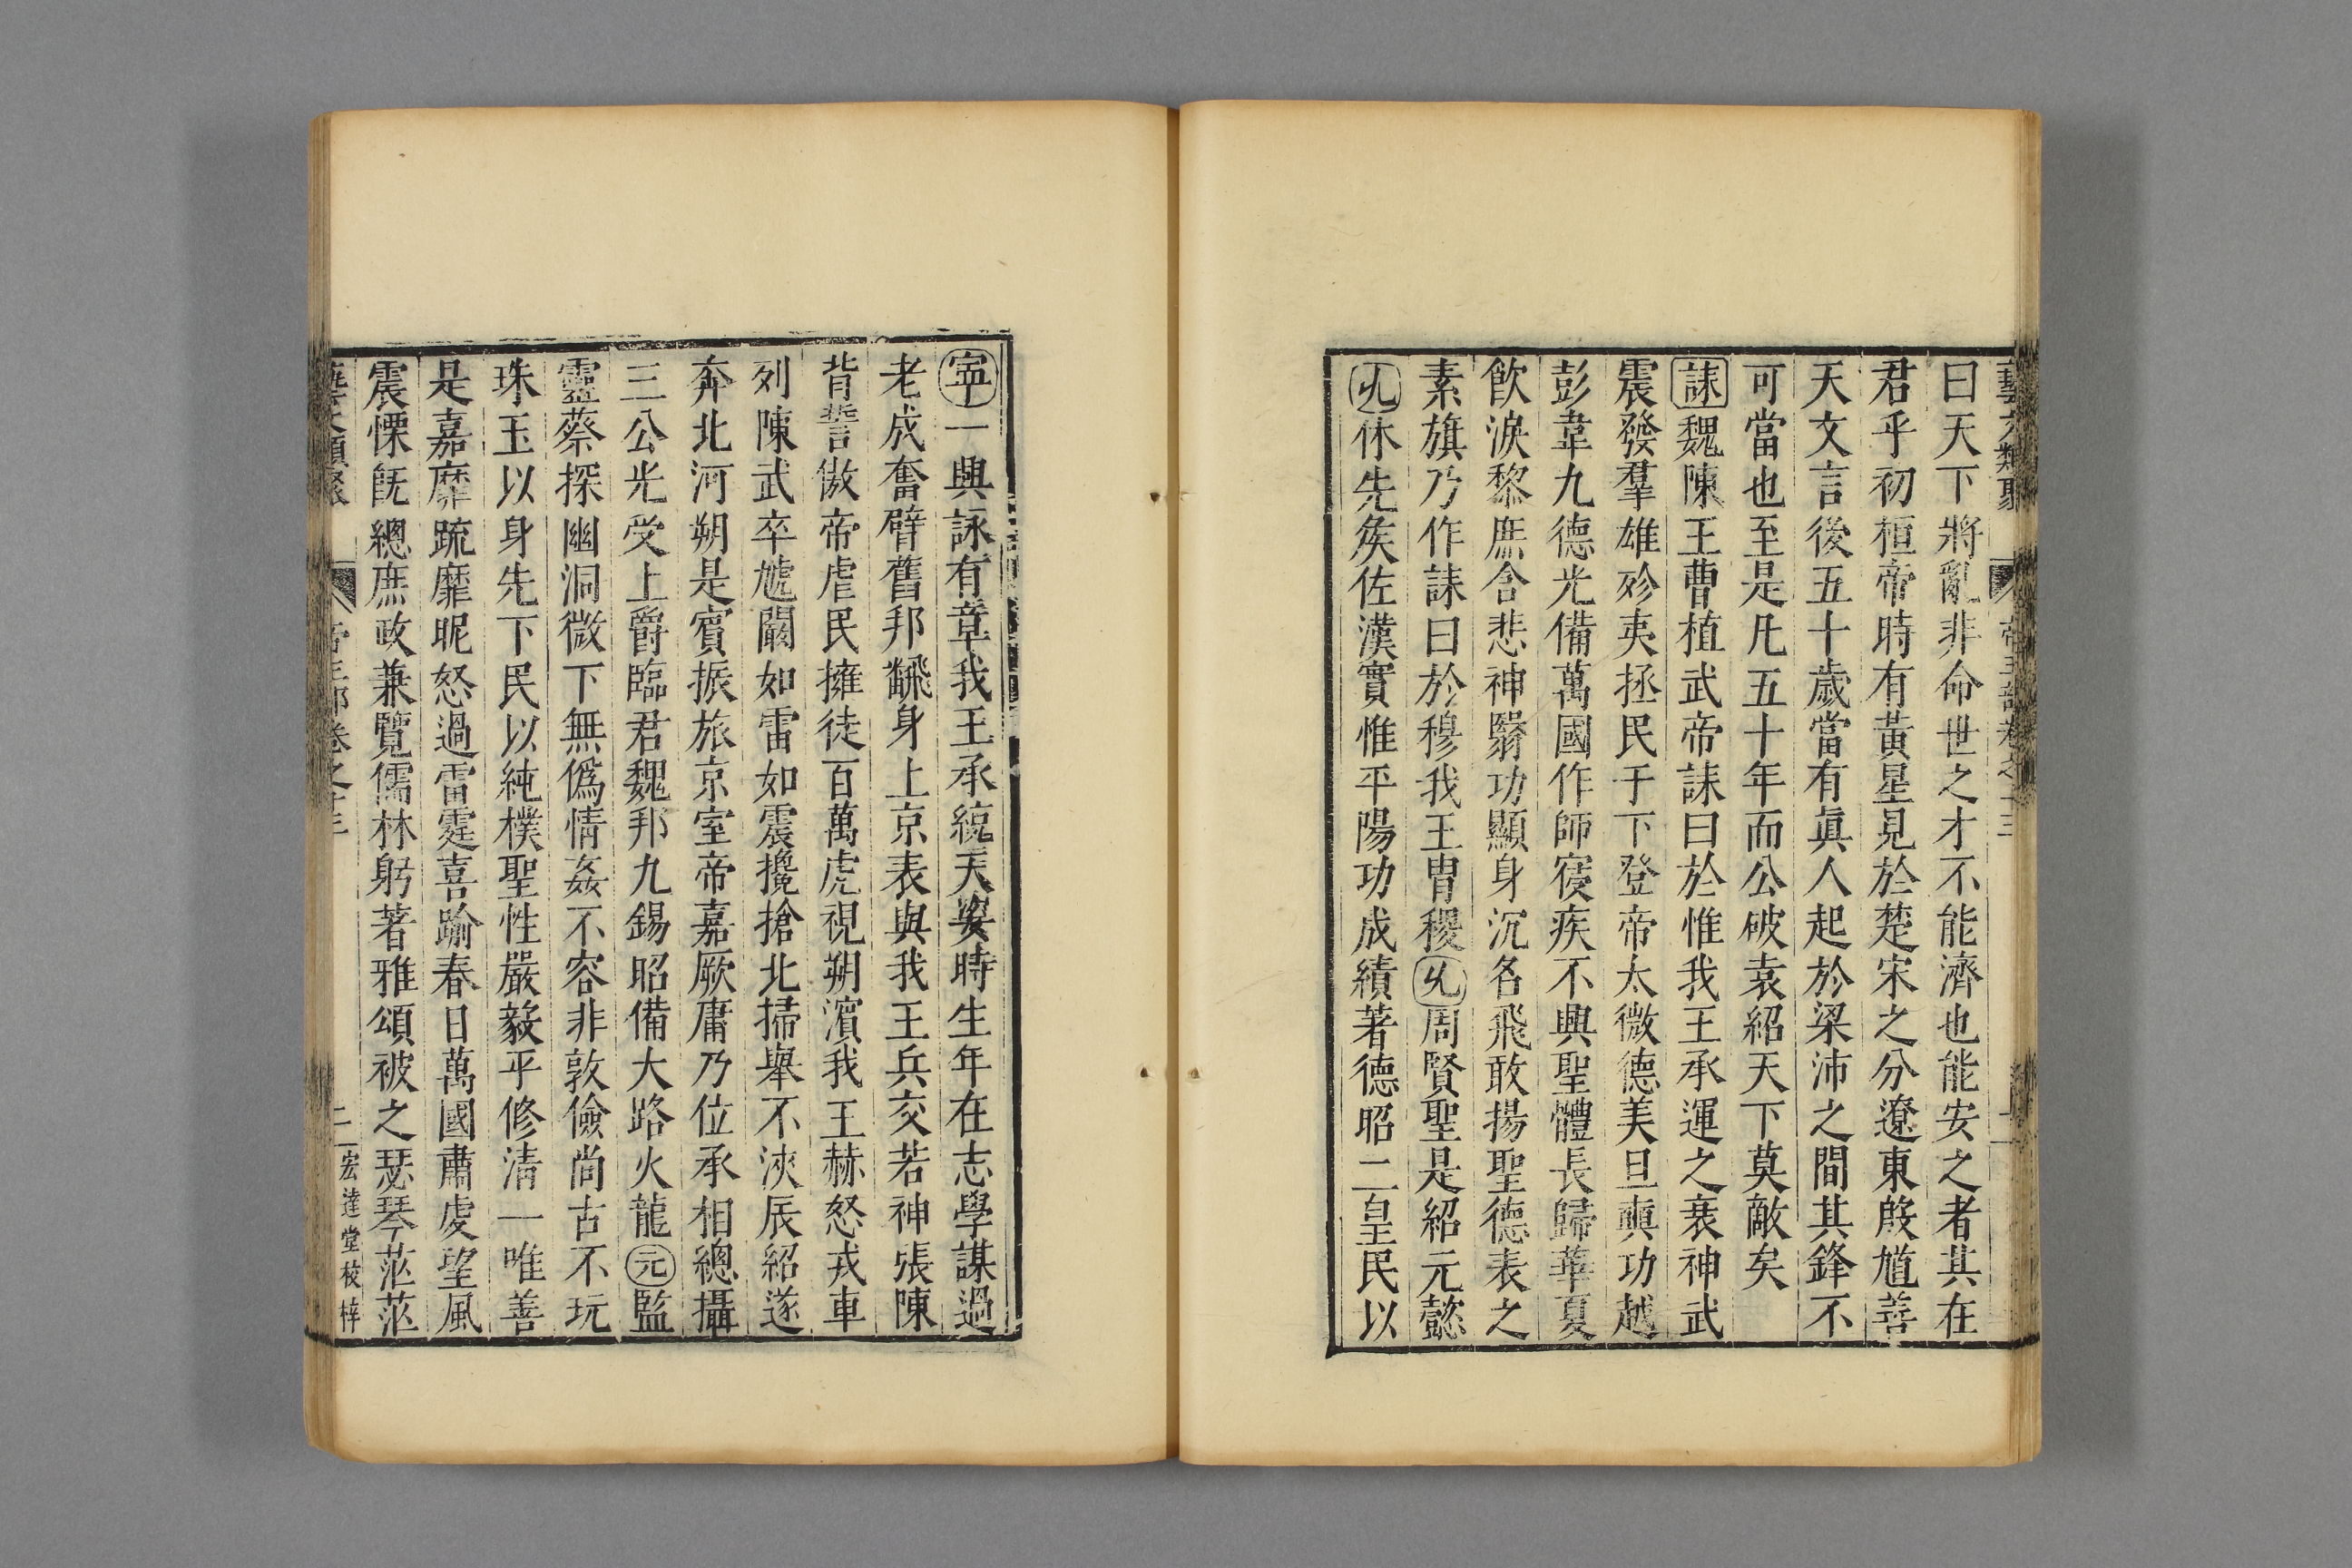 藝文類聚 帝王部卷之十三
曰天下將亂非命世之才不能濟也能安之者其在
君乎初桓帝時有黃星見於楚宋之分遼東殷馗善
天文言後五十歲當有眞人起於梁沛之間其鋒不
可當也至是凡五十年而公破袁紹天下莫敵矣
誄魏陳王曹植武帝誄曰於惟我王承運之衰神武
震發羣雄殄夷拯民于下登帝太微德美旦奭功越
彭韋九德光備萬國作師寑疾不興聖體長歸華夏
飲淚黎庶含悲神翳功顯身沉名飛敢揚聖德表之
素旗乃作誄曰於穆我王胄稷㕥周賢聖是紹元懿
㕥休先矦佐漢實惟平陽功成績著德昭二皇民以
寍一興詠有章我王承統天姿時生年在志學謀過
老成奮臂舊邦飜身上京表與我王兵交若神張陳
背誓傲帝虐民擁徒百萬虎視朔濱我王赫怒戎車
列陳武卒虓闞如雷如震攙搶北掃舉不浹辰紹遂
奔北河朔是賓振旅京室帝嘉厥庸乃位丞相總攝
三公光受上爵臨君魏邦九錫昭備大路火龍元監
靈蔡探幽洞微下無僞情姦不容非敦儉尚古不玩
珠玉以身先下民以純樸聖性嚴毅平修清一唯善
是嘉靡疏靡昵怒過雷霆喜踰春日萬國肅虔望風
震慄旣總庶政兼覽儒林躬著雅頌被之瑟琴茫茫
藝文類聚 帝王部卷之十三 二 宏達堂校梓